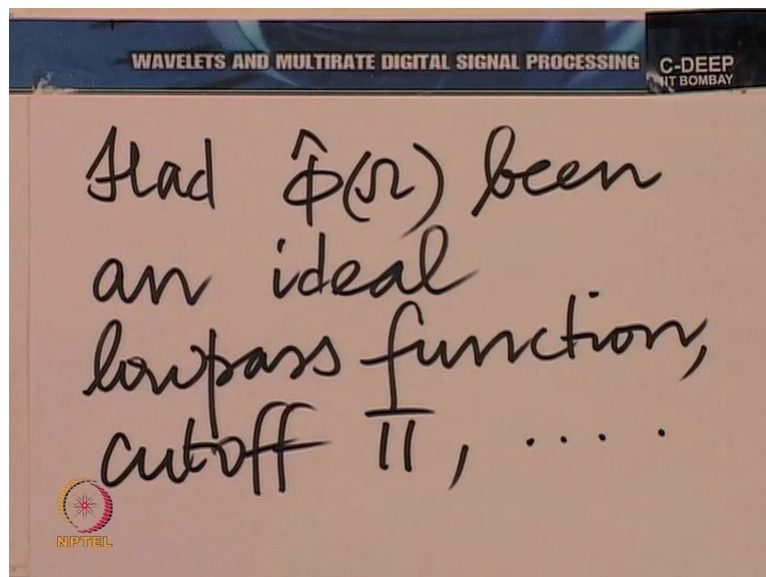 WAVELETS AND MULTIRATE DIGITAL SIGNAL PROCESSING
C-DEEP
IIT BOMBAY
Had φ̂(Ω) been
an ideal
lowpass function,
cutoff π, ....
NPTEL